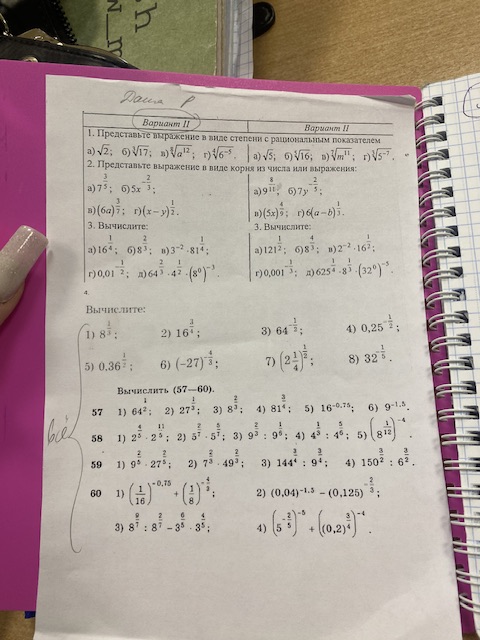 Даша Р
Вариант II Вариант II
1. Представьте выражение в виде степени с рациональным показателем
а) √2; б) ∛17; в) ⁵√a¹²; г) ⁴√6⁻⁵. а) √5; б) ∛16; в) ⁵√m¹¹; г) ∛5⁻⁷.
2. Представьте выражение в виде корня из числа или выражения:
а) 7^(3/5); б) 5x^(-2/3); а) 9^(8/11); б) 7y^(-2/5);
в) (6a)^(3/7); г) (x – y)^(1/2). в) (5x)^(4/9); г) 6(a – b)^(1/3).
3. Вычислите: 3. Вычислите:
а) 16^(1/4); б) 8^(2/3); в) 3⁻² · 81^(1/4); а) 121^(1/2); б) 8^(4/3); в) 2⁻² · 16^(1/2);
г) 0,01^(-1/2); д) 64^(2/3) · 4^(1/2) · (8⁰)⁻³. г) 0,001^(-1/3); д) 625^(1/4) · 8^(1/3) · (32⁰)⁻⁵.
4.
Вычислите:
1) 8^(1/3); 2) 16^(3/4); 3) 64^(-1/2); 4) 0,25^(-1/2);
5) 0,36^(1/2); 6) (–27)^(-4/3); 7) (2 1/4)^(1/2); 8) 32^(1/5).
всё
Вычислить (57—60).
57 1) 64^(1/2); 2) 27^(1/3); 3) 8^(2/3); 4) 81^(3/4); 5) 16^(-0,75); 6) 9^(-1,5).
58 1) 2^(4/5) · 2^(11/5); 2) 5^(2/7) · 5^(5/7); 3) 9^(2/3) : 9^(1/6); 4) 4^(1/3) : 4^(5/6); 5) (8^(1/12))⁻⁴.
59 1) 9^(2/5) · 27^(2/5); 2) 7^(2/3) · 49^(2/3); 3) 144^(3/4) : 9^(3/4); 4) 150^(3/2) : 6^(3/2).
60 1) (1/16)^(-0,75) + (1/8)^(-4/3); 2) (0,04)^(-1,5) – (0,125)^(-2/3);
3) 8^(9/7) : 8^(2/7) – 3^(6/5) · 3^(4/5); 4) (5^(-2/5))⁻⁵ + ((0,2)^(3/4))⁻⁴.